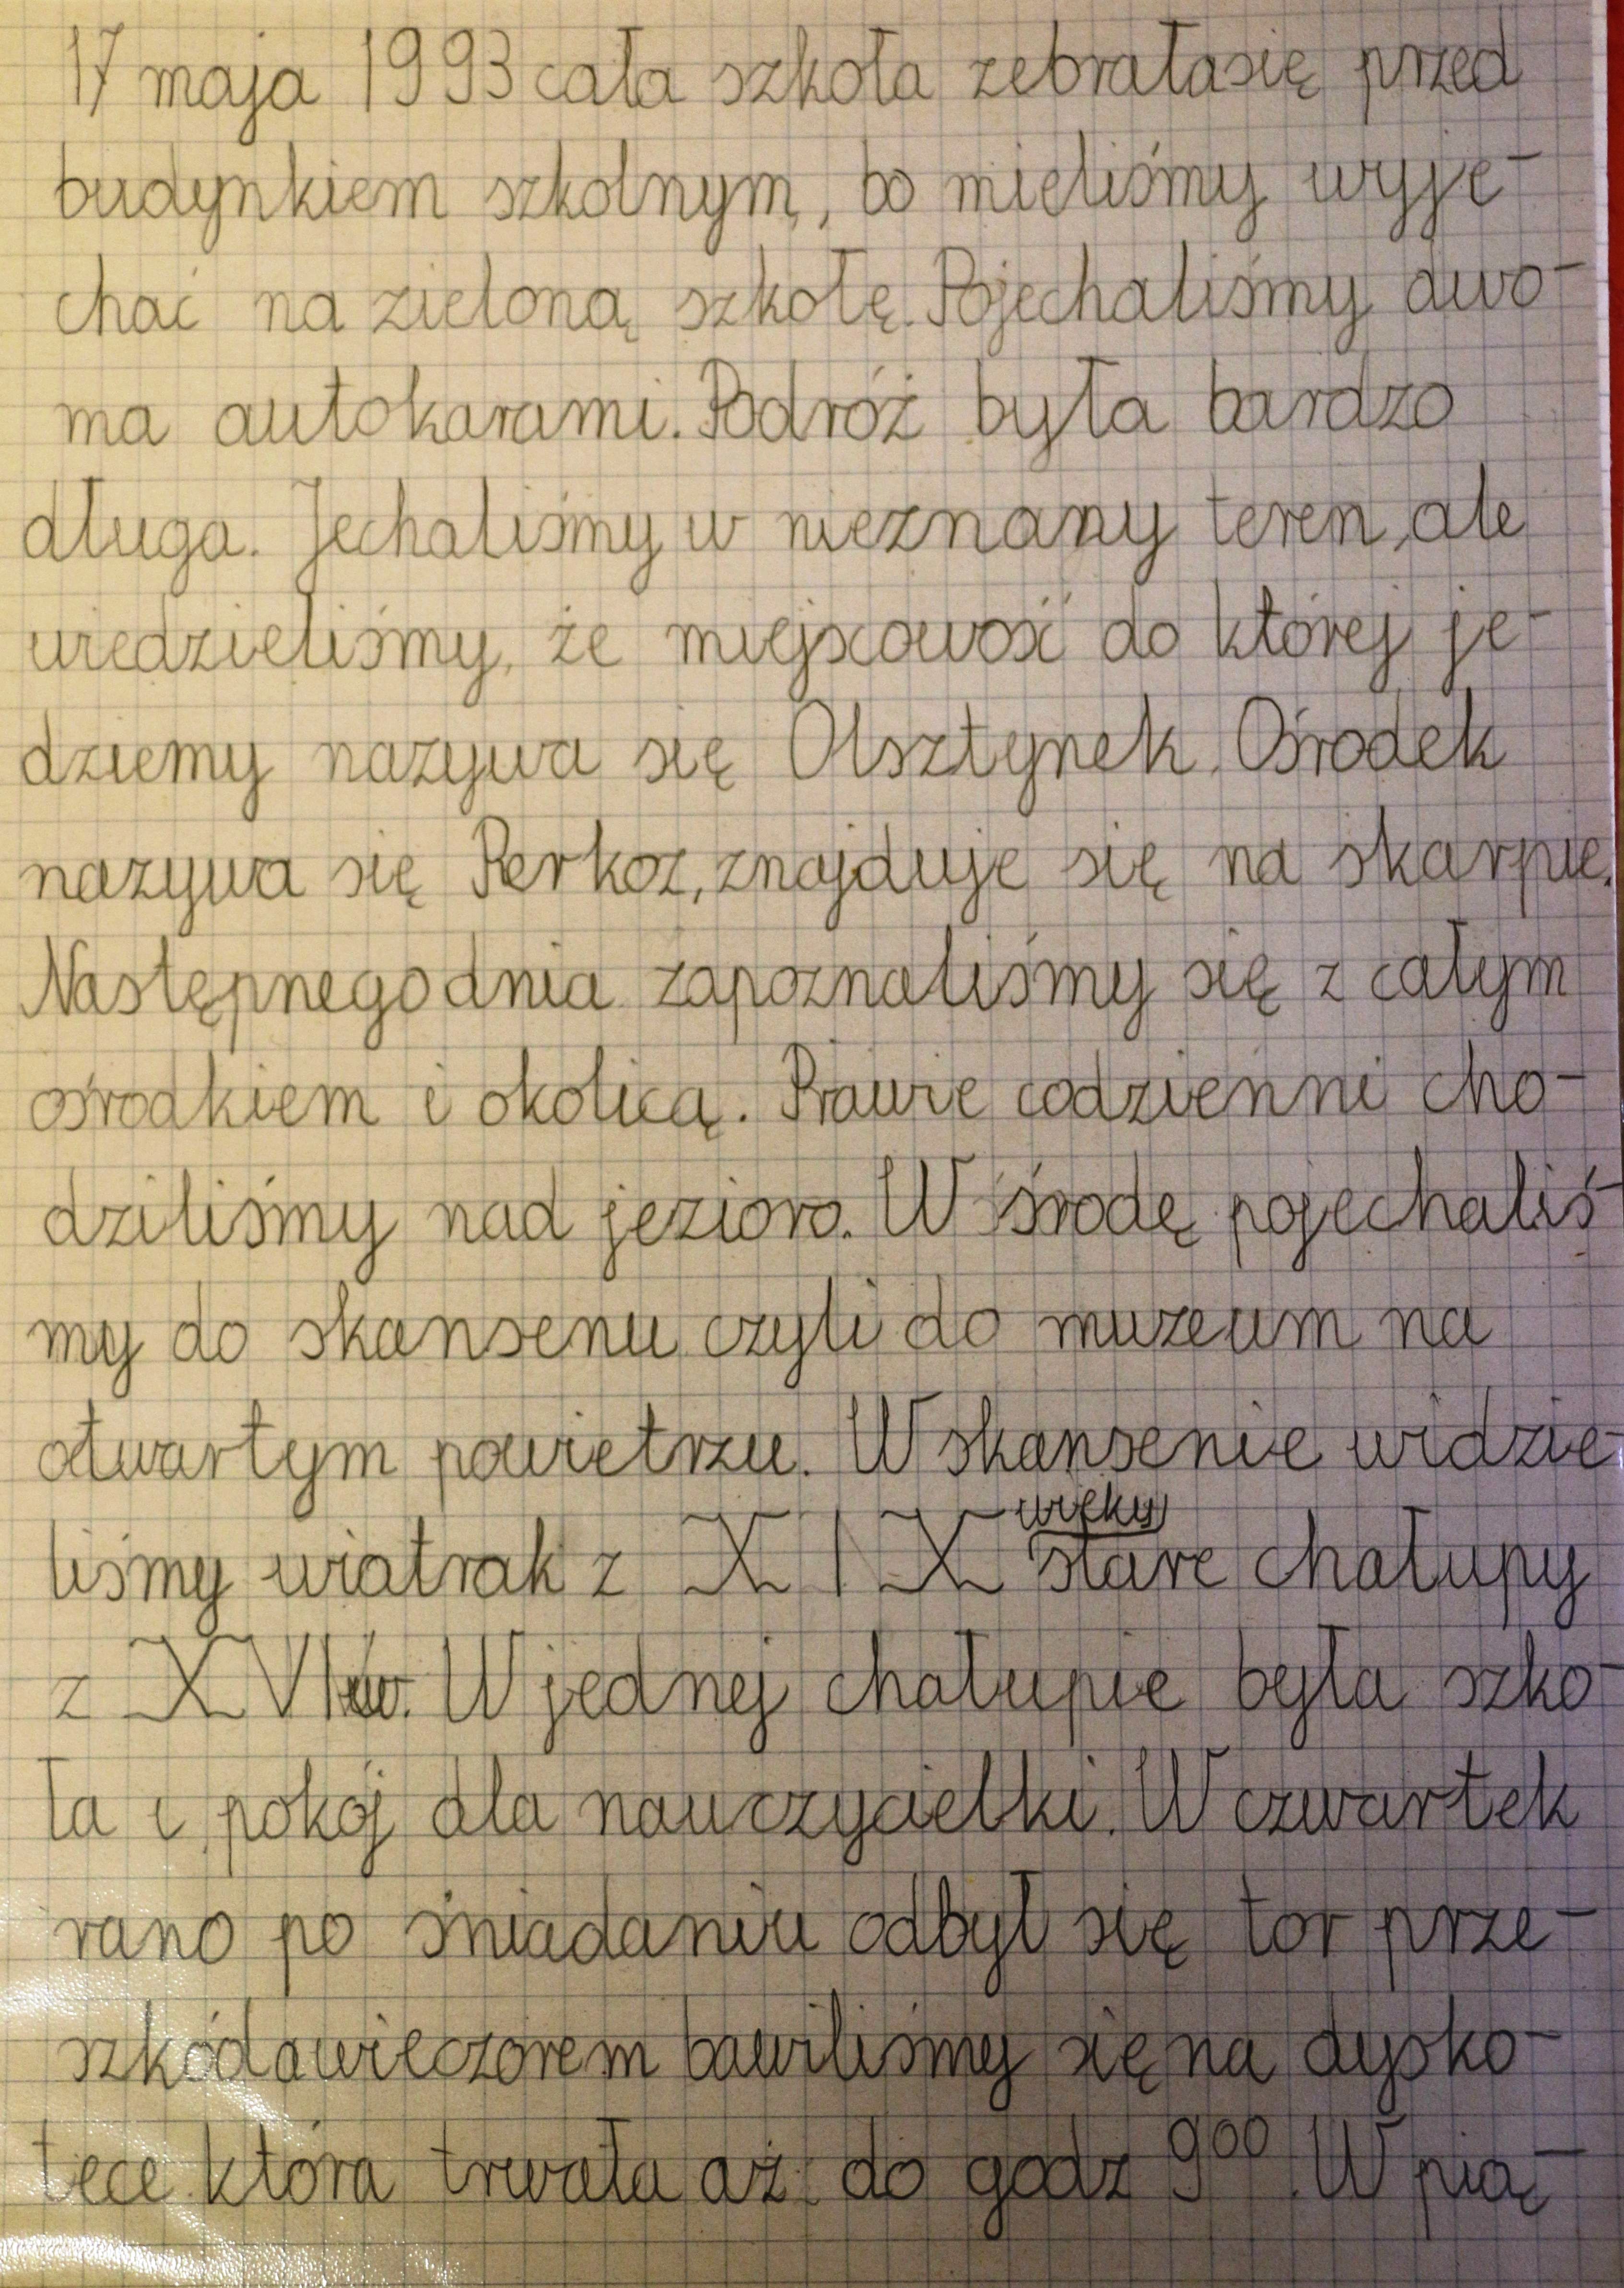 17 maja 1993 cała szkoła zebrałasię przed
budynkiem szkolnym, bo mieliśmy wyje-
chać na zieloną szkołę. Pojechaliśmy dwo-
ma autokarami. Podróż była bardzo
długa. Jechaliśmy w nieznany teren, ale
wiedzieliśmy, że miejscowość do której je-
dziemy nazywa się Olsztynek. Ośrodek
nazywa się Perkoz, znajduje się na skarpie.
Następnego dnia zapoznaliśmy się z całym
ośrodkiem i okolicą. Prawie codzienni cho-
dziliśmy nad jezioro. W środę pojechaliś-
my do skansenu czyli do muzeum na
otwartym powietrzu. W skansenie widzie-
wieku
liśmy wiatrak z XIX stare chałupy
z XVIw. W jednej chałupie była szko-
ła i pokój dla nauczycielki. W czwartek
rano po śniadaniu odbył się tor prze-
szkód a wieczorem bawiliśmy się na dysko-
tece która trwała aż do godz 9⁰⁰. W pią-